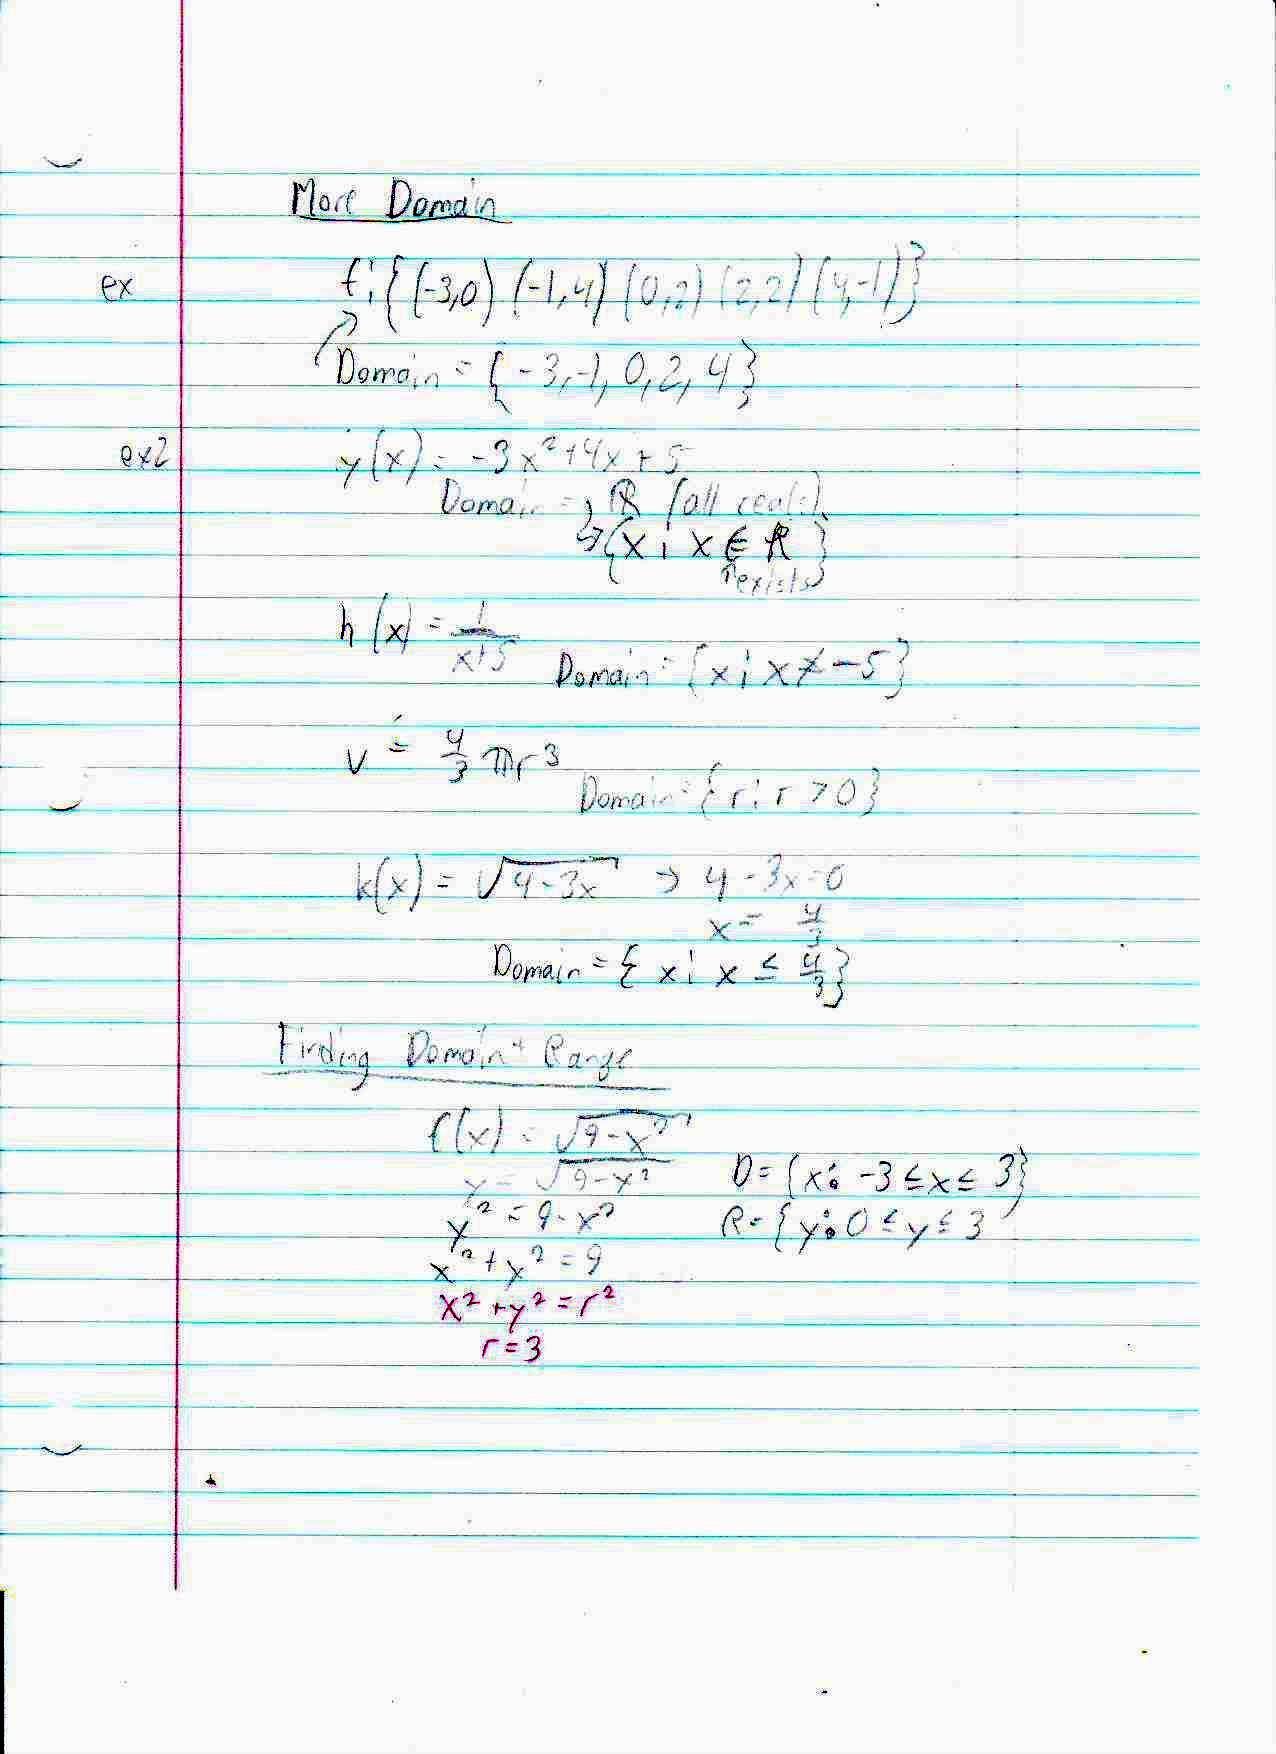 More Domain
ex f: {(-3,0) (-1,4) (0,2) (2,2) (4,-1)}
Domain = {-3,-1, 0, 2, 4}
ex2 y(x) = -3x²+4x+5
Domain = ℝ (all reals)
→ {x : x ∈ ℝ}
↑ exists
h(x) = 1/(x+5) Domain = {x : x ≠ -5}
v = 4/3 πr³
Domain = {r : r > 0}
k(x) = √(4-3x) → 4-3x=0
x = 4/3
Domain = {x : x ≤ 4/3}
Finding Domain + Range
f(x) = √(9-x²)
y = √(9-x²) D = {x: -3 ≤ x ≤ 3}
y² = 9-x² R = {y: 0 ≤ y ≤ 3
x² + y² = 9
x² + y² = r²
r = 3